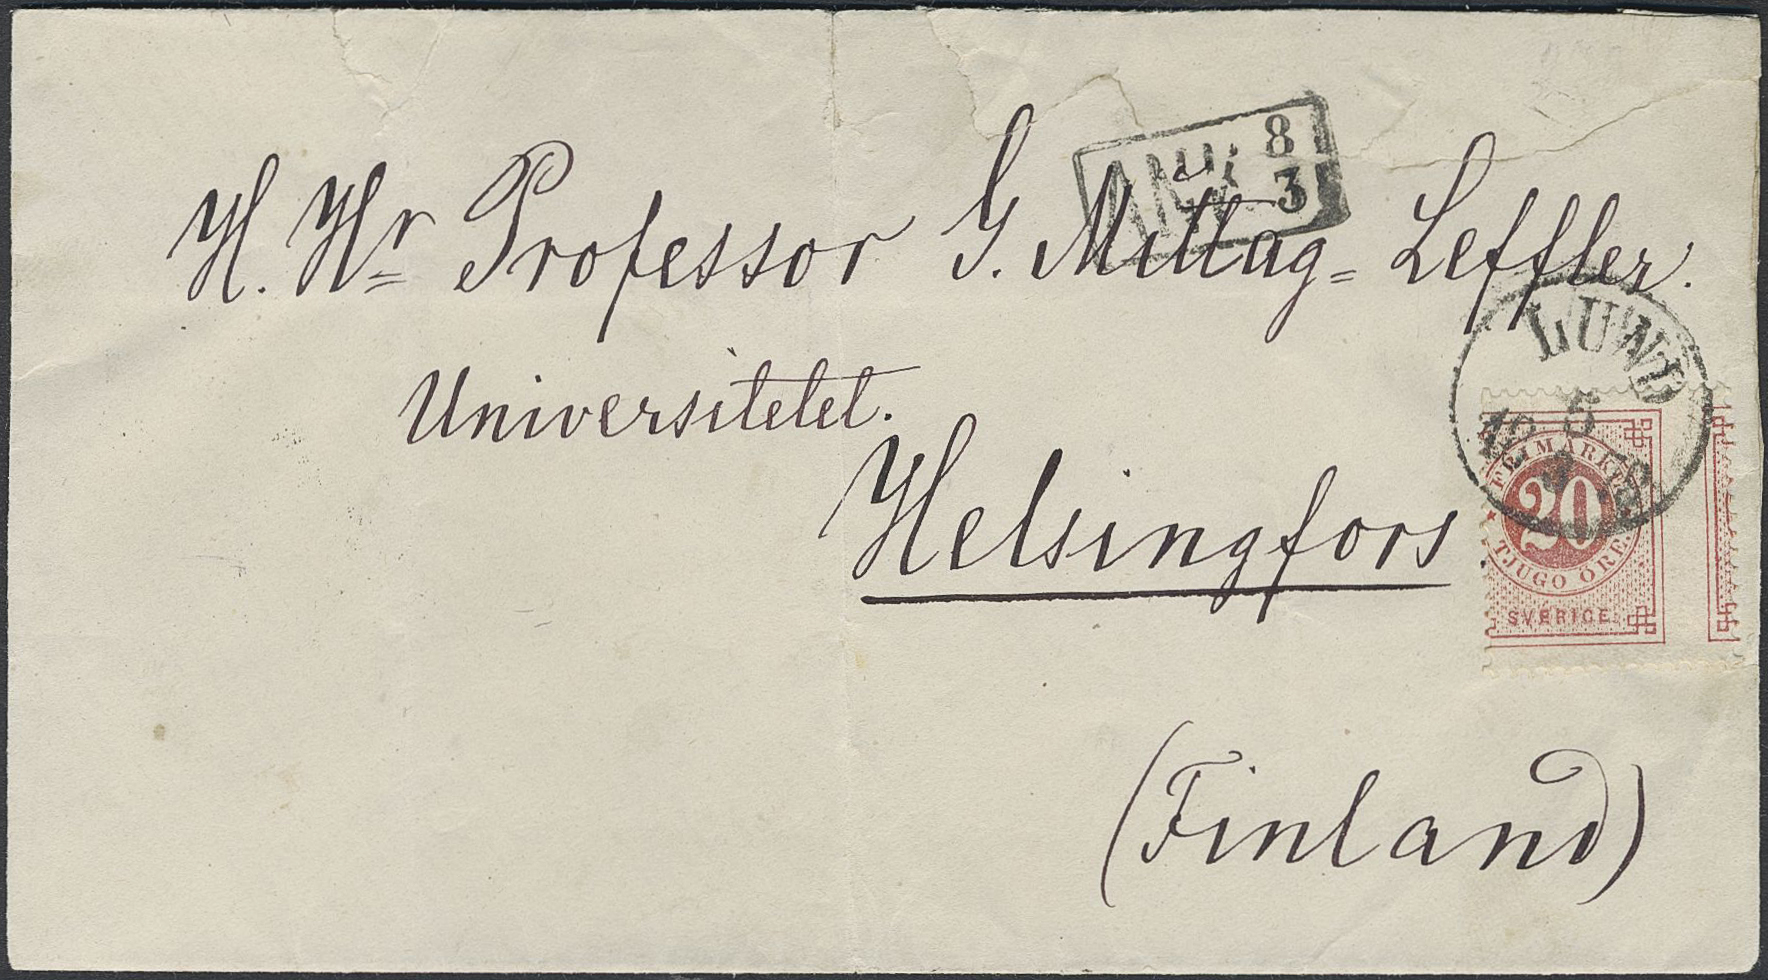 ANK
8
3
H. Hr Professor G. Mittag=Leffler.
LUND
Universitetet.
5
FRIMÄRKE
20
TJUGO ÖRE
SVERIGE
Helsingfors
(Finland)